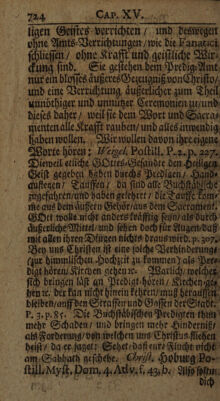 724 CAP. XV.
ligen Geistes verrichten/ und deswegen
ohne Amts-Verrichtungen/ wie die Fanatici
schliessen/ ohne Krafft und geistliche Wir-
ckung sind. Sie gestehen dem Predig-Amt
nur ein blosses äusseres Gezeugniß von Christo/
und eine Verrichtung äusserlicher zum Theil
unnöthiger und unnützer Ceremonien zu/ und
dieses daher/ weil sie dem Wort und Sacra-
menten alle Krafft rauben/ und alles inwendig
haben wollen. Wir wollen davon ihre eigene
Worte hören; Weigel. Postill. P. 2. p. 227.
Dieweil etliche GOttes-Gesandte den Heiligen
Geist gegeben haben durchs Predigen/ Hand-
aufflegen/ Tauffen/ da sind alle Buchstäbische
zugefahren/ und haben gelehret/ die Tauffe kom-
me aus dem äussern Gehör/ aus dem Sacrament.
GOtt wolle nicht anders kräfftig seyn/ als durch
äusserliche Mittel/ und sehen doch für Augen/ daß
mit allen ihren Dingen nichts draus wird. p. 307.
Bey uns Christen ist eine solche Verhinderung/
(zur himmlischen Hochzeit zu kommen) als Pre-
digt hören/ Kirchen gehen ꝛc. Warlich/ welcher
sich bringen läst an Predigt-hören/ Kirchen-ge-
hen ꝛc. der kan nicht hinein kommen/ muß draussen
bleiben/ auf den Strassen und Gassen der Stadt.
P. 3. p. 85. Die Buchstäbischen Predigten thun
mehr Schaden/ und bringen mehr Hinderniß
als Forderung/ von welchen und Christus fliehen
heist/ da er saget: Sehet/ daß eure Flucht nicht
am Sabbath geschehe. Christ. Hoburg Po-
still. Myst. Dom. 4. Adv. f. 43. b. Also solten
dich